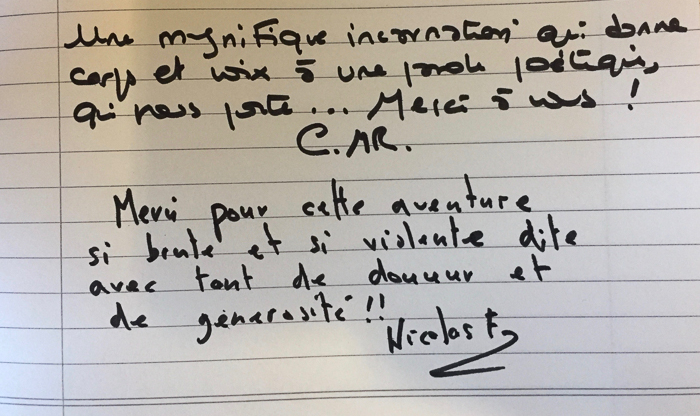 Une magnifique incarnation qui donne
corps et voix à une parole poétique,
qui nous porte... Merci à vous !
C. AR.
Merci pour cette aventure
si brute et si violente dite
avec tant de douceur et
de générosité !!
Nicolas F.